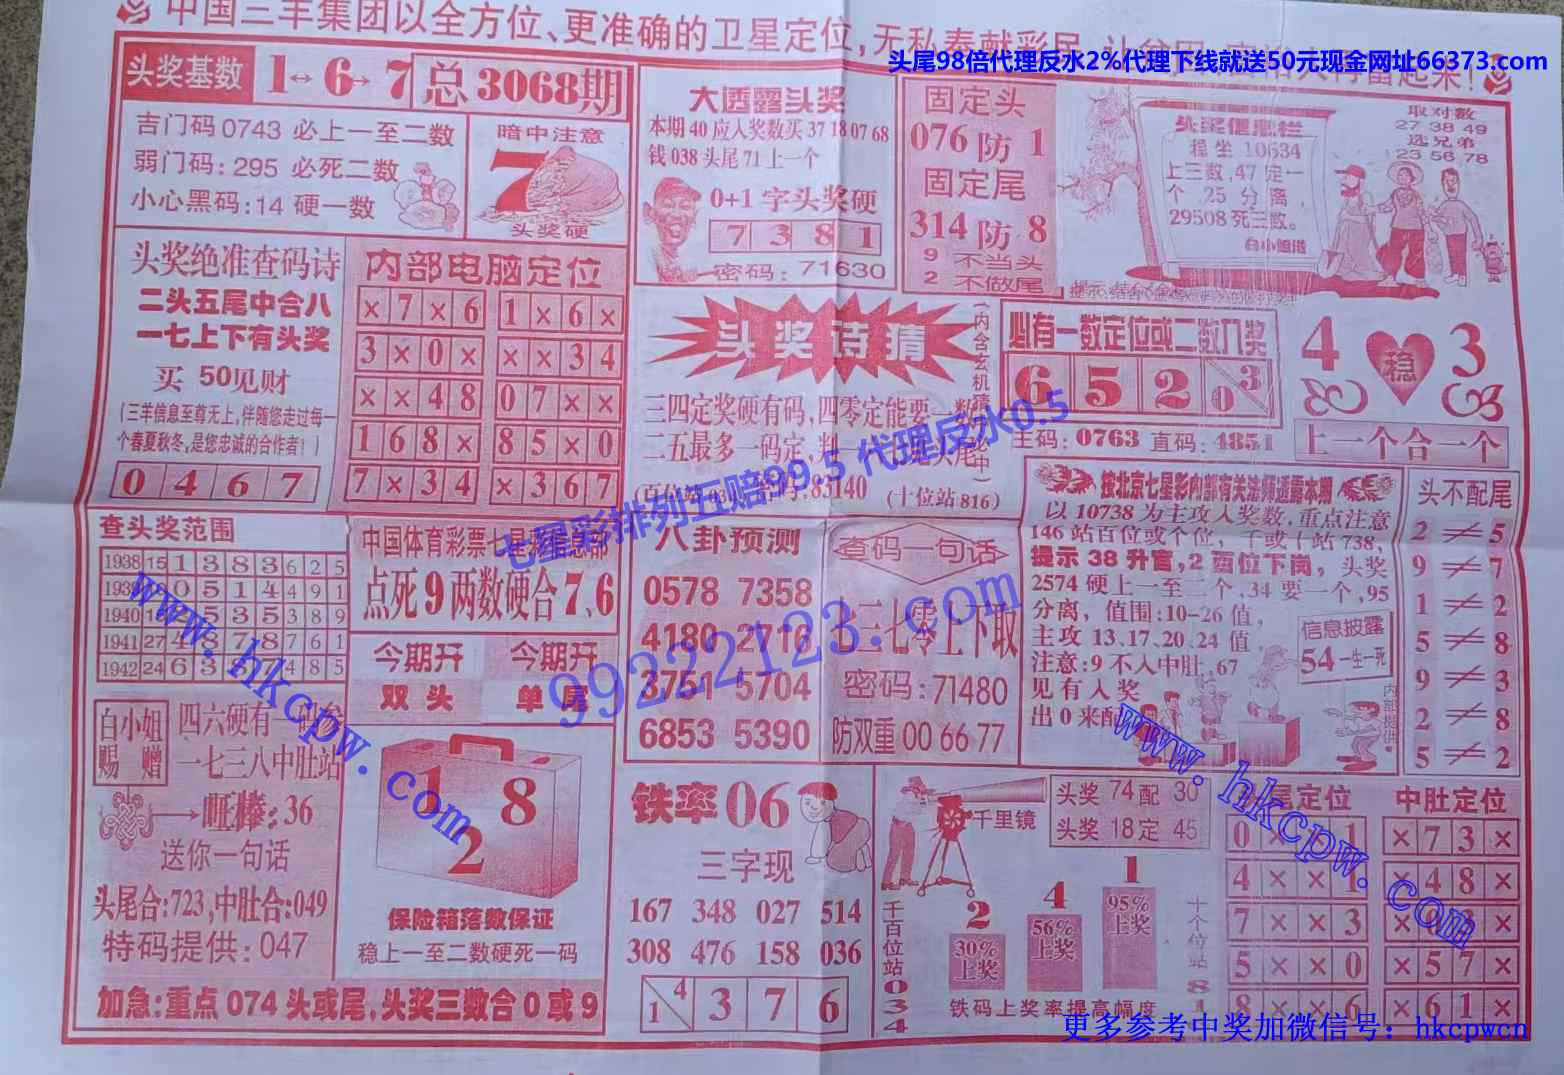 中国三羊集团以全方位、更准确的卫星定位,无私奉献彩民
头尾98倍代理反水2%代理下线就送50元现金网址66373.com
头奖基数 1↔6→7 总3068期
吉门码0743 必上一至二数
弱门码:295 必死二数
小心黑码:14 硬一数
暗中注意
7
头奖硬
大透露头奖
本期40应入奖数买37 18 07 68
钱038头尾71上一个
0+1字头奖硬
7 3 8 1
密码:71630
固定头
076防1
固定尾
314防8
9 不当头
2 不做尾
头奖信息栏
程坐 10634
上三数,47定一
个,25分离,
29508死三数。
白小姐谱
取对数
27 38 49
选兄弟
23 56 78
头奖绝准查码诗
二头五尾中合八
一七上下有头奖
买 50见财
(三羊信息至尊无上,伴随您走过每一
个春夏秋冬,是您忠诚的合作者!)
0 4 6 7
内部电脑定位
×7×6 1×6×
3×0× ××34
××48 07××
168× 85×0
7×34 ×367
头奖诗猜
三四定奖硬有码,四零定能要一数
二五最多一码定,判一
(十位站816)
必有一数定位或二数入奖
6 5 2 0 3
主码:0763 直码:4851
4 稳 3
上一个合一个
查头奖范围
1938 15 1 3 8 3 6 2 5
中国体育彩票七星
点死9两数硬合7、6
今期开 今期开
双头 单尾
八卦预测
0578 7358
4180 2716
3751 5704
6853 5390
查码一句话
七三七零上下取
密码:71480
防双重 00 66 77
七星彩排列五赔99.5 代理反水0.5
99222123.com
按北京七星彩内部有关法师透露本期
以10738为主攻入奖数,重点注意
146站百位或个位,千或十站738,
提示38升官,2酉位下岗,头奖
2574硬上一至二个,34要一个,95
分离,值围:10-26值,
主攻13,17,20,24值,
注意:9不入中肚,67
见有入奖
出0来配
信息披露
54一生一死
头不配尾
2≠5
9≠7
1≠2
5≠8
9≠3
2≠8
5≠2
白小姐
赐赠
四六硬有一
一七三八中肚站
旺棒:36
送你一句话
头尾合:723,中肚合:049
特码提供:047
1 8
2
保险箱落数保证
稳上一至二数硬死一码
加急:重点074头或尾,头奖三数合0或9
铁率06
三字现
167 348 027 514
308 476 158 036
1 4 3 7 6
千里镜
头奖 74配 30
头奖 18定 45
千百位站034
2
30%
上奖
4
56%
上奖
1
95%
上奖
十个位站81
铁码上奖率提高幅度
尾定位
0××1
4××1
7××3
5××0
8××6
中肚定位
×73×
×48×
×57×
×61×
www.hkcpw.com
www.hkcpw.com
更多参考中奖加微信号:hkcpwcn